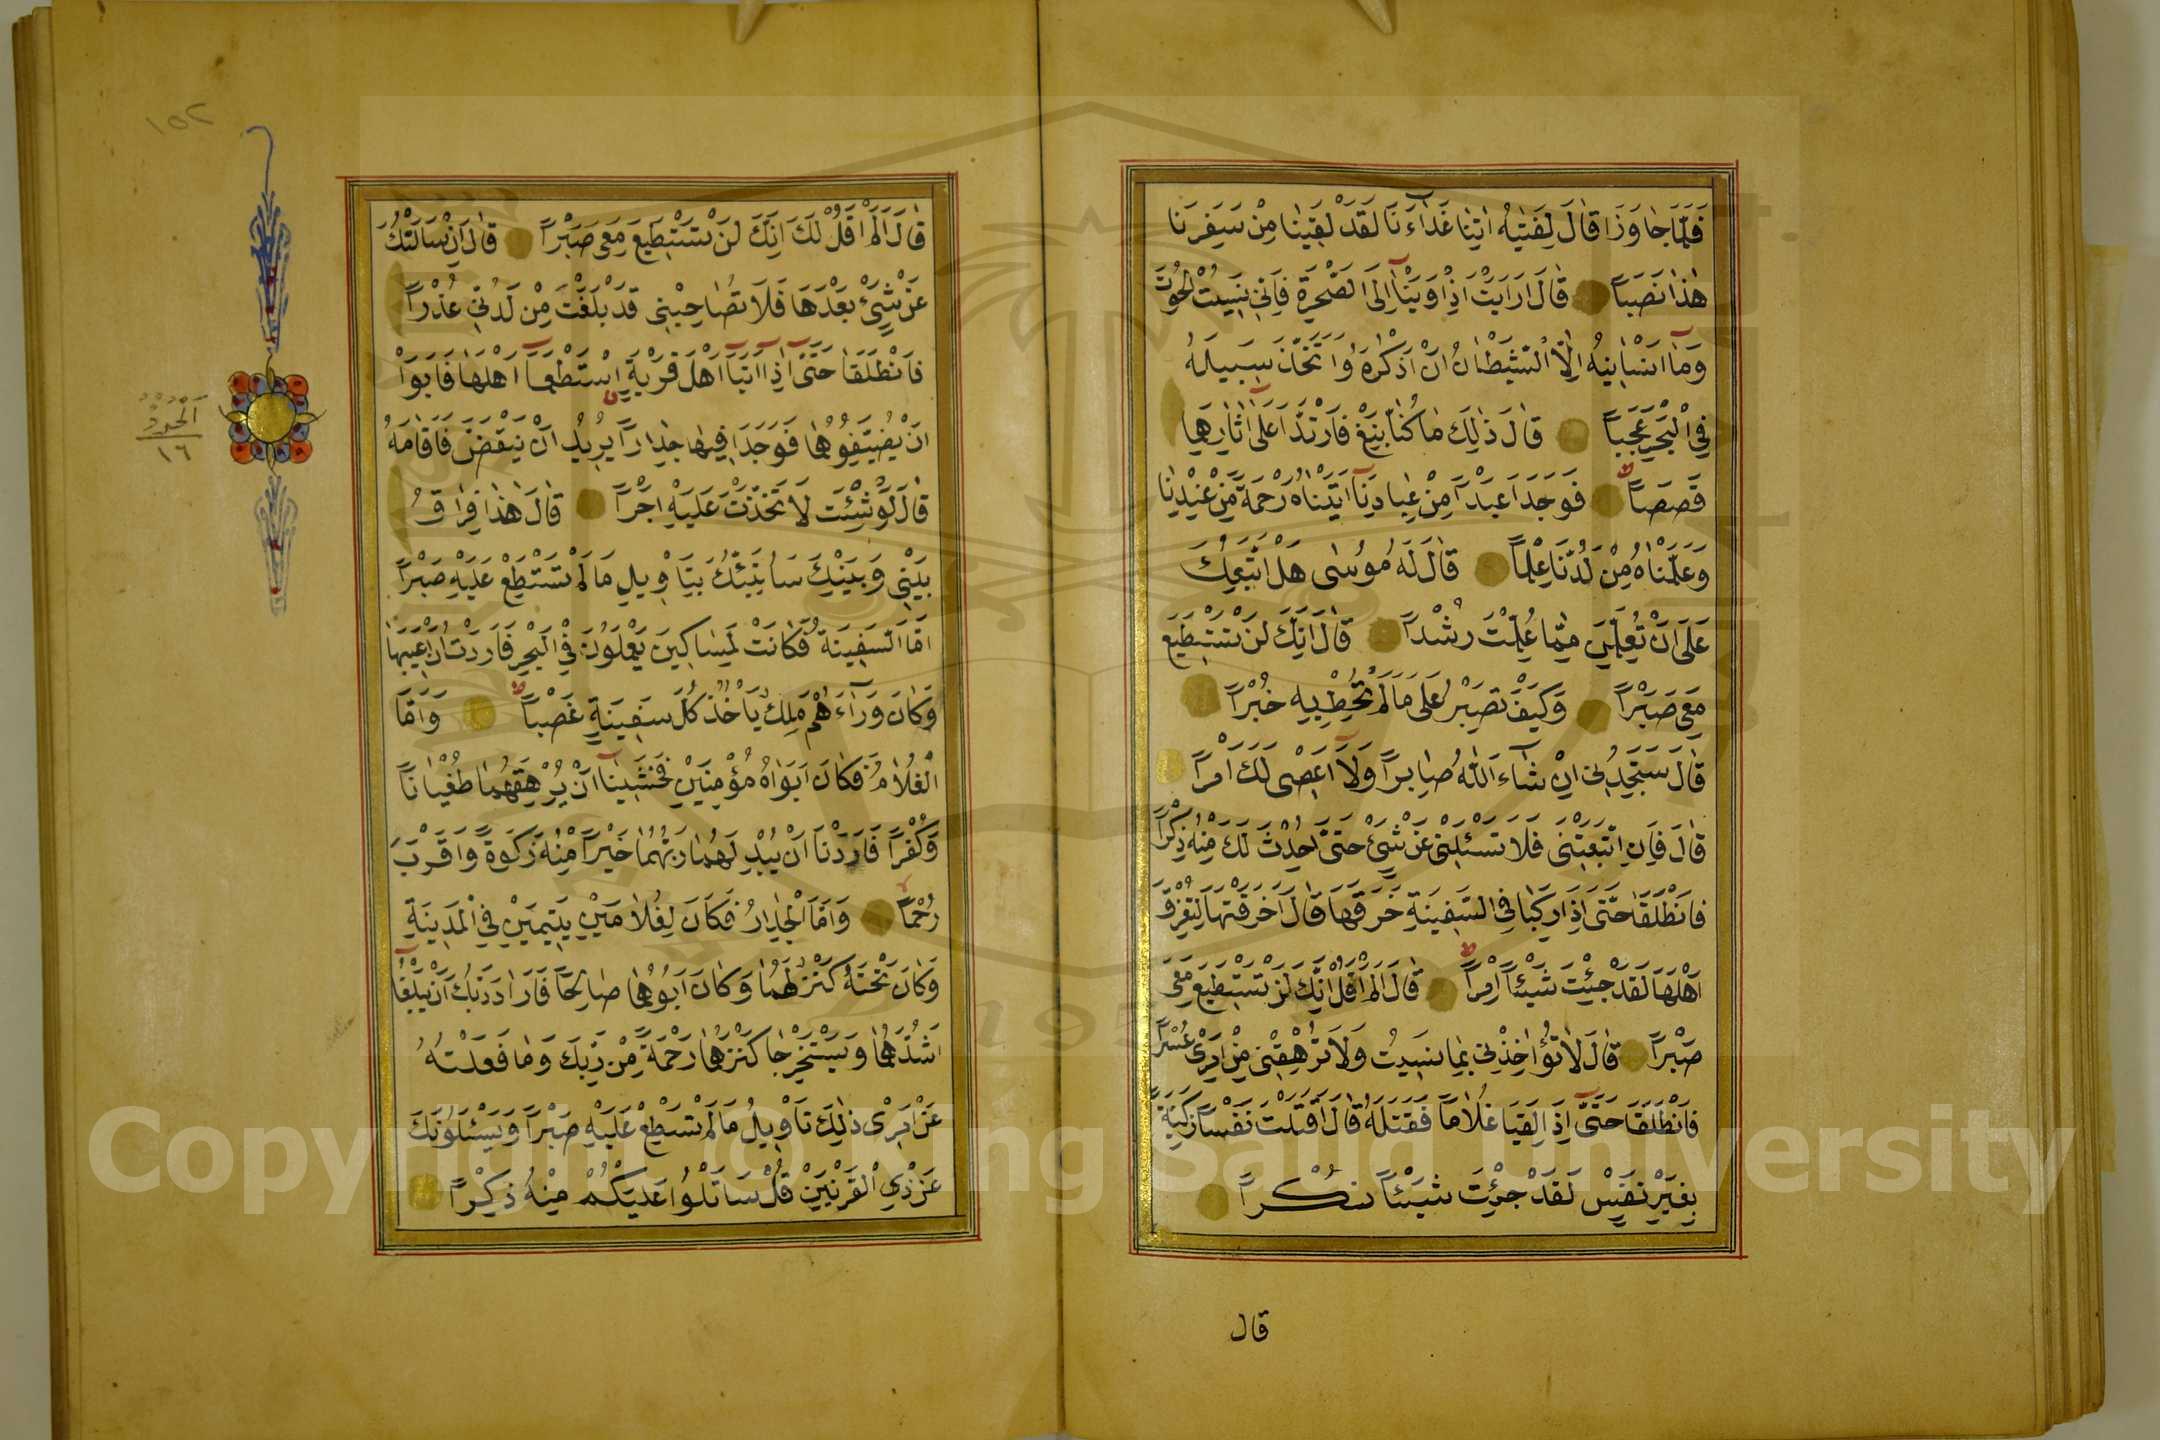 فَلَمَّا جَاوَزَا قَالَ لِفَتٰيهُ اٰتِنَا غَدَآءَنَا لَقَدْ لَقِينَا مِنْ سَفَرِنَا
هٰذَا نَصَبًا قَالَ اَرَاَيْتَ اِذْ اَوَيْنَآ اِلَى الصَّخْرَةِ فَاِنِّي نَسِيتُ الْحُوتَ
وَمَآ اَنْسَانِيهُ اِلَّا الشَّيْطَانُ اَنْ اَذْكُرَهُ وَاتَّخَذَ سَبِيلَهُ
فِي الْبَحْرِ عَجَبًا قَالَ ذٰلِكَ مَا كُنَّا نَبْغِ فَارْتَدَّا عَلٰٓى اٰثَارِهِمَا
قَصَصًا فَوَجَدَا عَبْدًا مِنْ عِبَادِنَآ اٰتَيْنَاهُ رَحْمَةً مِنْ عِنْدِنَا
وَعَلَّمْنَاهُ مِنْ لَدُنَّا عِلْمًا قَالَ لَهُ مُوسٰى هَلْ اَتَّبِعُكَ
عَلٰٓى اَنْ تُعَلِّمَنِ مِمَّا عُلِّمْتَ رُشْدًا قَالَ اِنَّكَ لَنْ تَسْتَطِيعَ
مَعِيَ صَبْرًا وَكَيْفَ تَصْبِرُ عَلٰى مَا لَمْ تُحِطْ بِهِ خُبْرًا
قَالَ سَتَجِدُنِي اِنْ شَآءَ اللّٰهُ صَابِرًا وَلَآ اَعْصِي لَكَ اَمْرًا
قَالَ فَاِنِ اتَّبَعْتَنِي فَلَا تَسْئَلْنِي عَنْ شَيْءٍ حَتّٰى اُحْدِثَ لَكَ مِنْهُ ذِكْرًا
فَانْطَلَقَا حَتّٰى اِذَا رَكِبَا فِي السَّفِينَةِ خَرَقَهَا قَالَ اَخَرَقْتَهَا لِتُغْرِقَ
اَهْلَهَا لَقَدْ جِئْتَ شَيْئًا اِمْرًا قَالَ اَلَمْ اَقُلْ اِنَّكَ لَنْ تَسْتَطِيعَ مَعِيَ
صَبْرًا قَالَ لَا تُؤَاخِذْنِي بِمَا نَسِيتُ وَلَا تُرْهِقْنِي مِنْ اَمْرِي عُسْرًا
فَانْطَلَقَا حَتّٰٓى اِذَا لَقِيَا غُلَامًا فَقَتَلَهُ قَالَ اَقَتَلْتَ نَفْسًا زَكِيَّةً
بِغَيْرِ نَفْسٍ لَقَدْ جِئْتَ شَيْئًا نُكْرًا
قال
١٥٢
قَالَ اَلَمْ اَقُلْ لَكَ اِنَّكَ لَنْ تَسْتَطِيعَ مَعِيَ صَبْرًا قَالَ اِنْ سَاَلْتُكَ
عَنْ شَيْءٍ بَعْدَهَا فَلَا تُصَاحِبْنِي قَدْ بَلَغْتَ مِنْ لَدُنِّي عُذْرًا
فَانْطَلَقَا حَتّٰٓى اِذَآ اَتَيَآ اَهْلَ قَرْيَةٍ اسْتَطْعَمَآ اَهْلَهَا فَاَبَوْا
اَنْ يُضَيِّفُوهُمَا فَوَجَدَا فِيهَا جِدَارًا يُرِيدُ اَنْ يَنْقَضَّ فَاَقَامَهُ
قَالَ لَوْ شِئْتَ لَاتَّخَذْتَ عَلَيْهِ اَجْرًا قَالَ هٰذَا فِرَاقُ
بَيْنِي وَبَيْنِكَ سَاُنَبِّئُكَ بِتَاْوِيلِ مَا لَمْ تَسْتَطِعْ عَلَيْهِ صَبْرًا
اَمَّا السَّفِينَةُ فَكَانَتْ لِمَسَاكِينَ يَعْمَلُونَ فِي الْبَحْرِ فَاَرَدْتُ اَنْ اَعِيبَهَا
وَكَانَ وَرَآءَهُمْ مَلِكٌ يَاْخُذُ كُلَّ سَفِينَةٍ غَصْبًا وَاَمَّا
الْغُلَامُ فَكَانَ اَبَوَاهُ مُؤْمِنَيْنِ فَخَشِينَآ اَنْ يُرْهِقَهُمَا طُغْيَانًا
وَكُفْرًا فَاَرَدْنَا اَنْ يُبْدِلَهُمَا رَبُّهُمَا خَيْرًا مِنْهُ زَكٰوةً وَاَقْرَبَ
رُحْمًا وَاَمَّا الْجِدَارُ فَكَانَ لِغُلَامَيْنِ يَتِيمَيْنِ فِي الْمَدِينَةِ
وَكَانَ تَحْتَهُ كَنْزٌ لَهُمَا وَكَانَ اَبُوهُمَا صَالِحًا فَاَرَادَ رَبُّكَ اَنْ يَبْلُغَآ
اَشُدَّهُمَا وَيَسْتَخْرِجَا كَنْزَهُمَا رَحْمَةً مِنْ رَبِّكَ وَمَا فَعَلْتُهُ
عَنْ اَمْرِي ذٰلِكَ تَاْوِيلُ مَا لَمْ تَسْطِعْ عَلَيْهِ صَبْرًا وَيَسْئَلُونَكَ
عَنْ ذِي الْقَرْنَيْنِ قُلْ سَاَتْلُوا عَلَيْكُمْ مِنْهُ ذِكْرًا
الجزؤ
١٦
Copyright © King Saud University